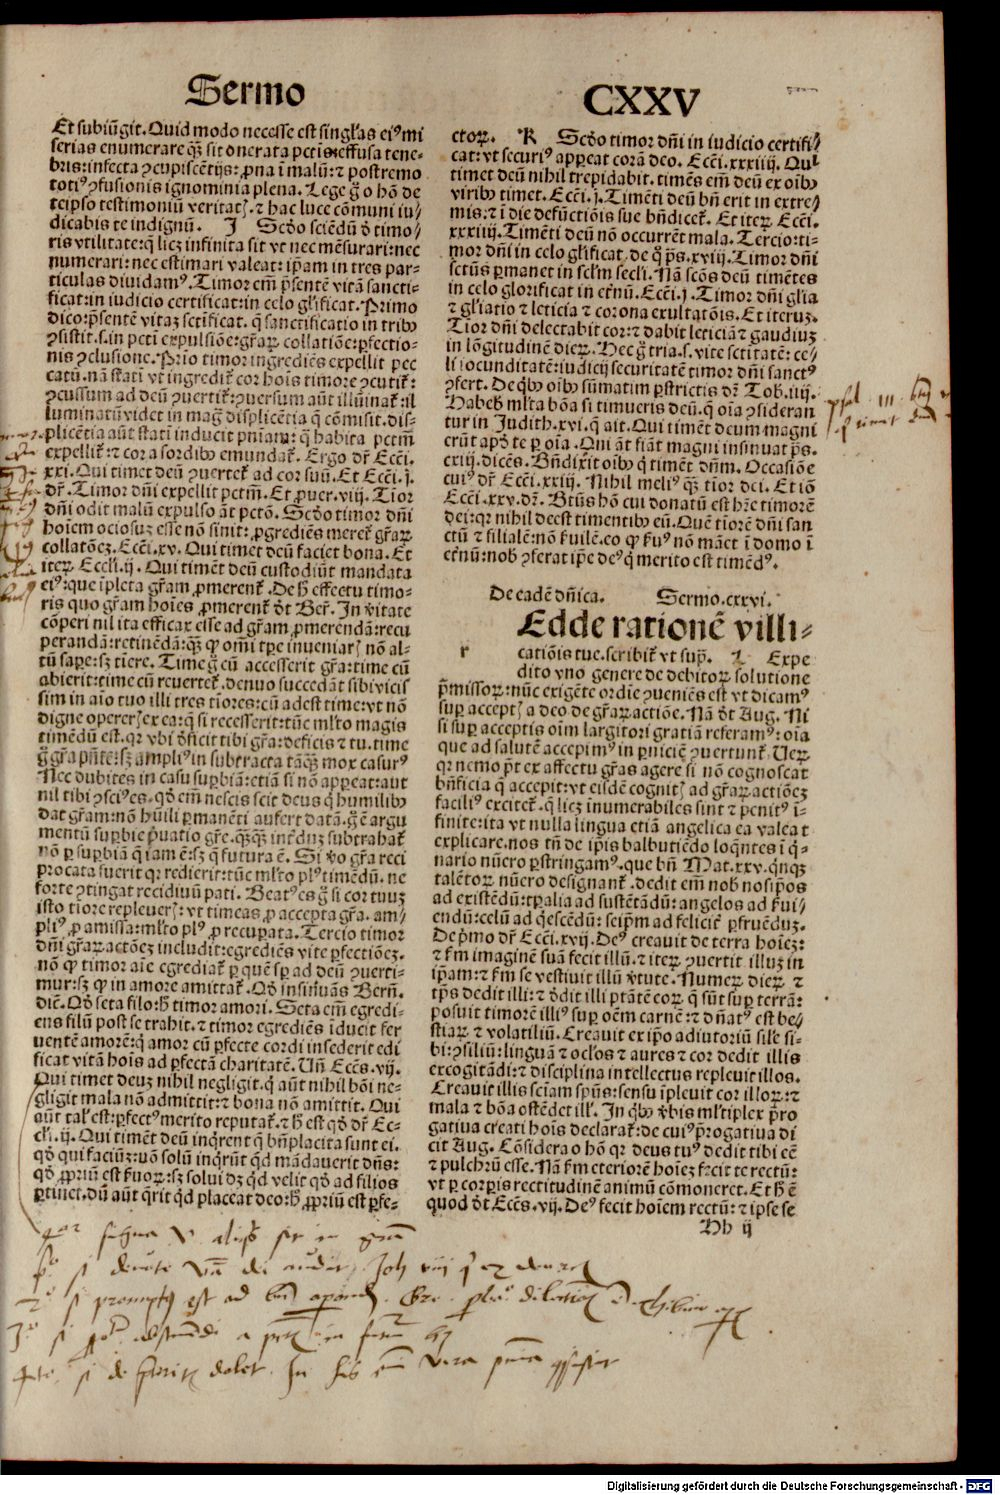 Sermo CXXV
Et subiũgit. Quid modo necesse est singl'as eiꝰ mi
serias enumerare qȝ̃ sit onerata pctis: effusa tene-
bris: infecta ꝯcupiscẽtijs: ꝓna ĩ malũ: ⁊ postremo
totiꝰ ꝯfusionis ignominia plena. Lege g̊ o hõ de
teipso testimoniũ veritatꝭ. ⁊ hac luce cõmuni iu/
dicabis te indignũ. I Scḋo sciẽdũ ď timo/
ris vtilitate: q̃ licȝ infinita sit vt nec mẽsurari: nec
numerari: nec estimari valeat: ip̃am in tres par-
ticulas diuidamꝰ. Timor em̃ p̃sentẽ vitã sancti-
ficat: in iudicio certificat: in celo gl'ificat. Primo
dico: p̃sentẽ vitaȝ sctificat. q̃ sanctificatio in tribꝰ
ꝯsistit. s. in pcti expulsiõe: gr̃aꝝ collatiõe: ꝑfectio-
nis ꝯclusione. Prio timor ingrediẽs expellit pec
catũ. nã stati vt ingredit᷑ cor hoĩs timore ꝯcutit᷑:
ꝯcussum ad deũ ꝯuertit᷑: ꝯuersum aũt illũinat᷑: il
luminatũ videt in mag̃ displicẽtia q̃ cõmisit. dis-
plicẽtia aũt stati inducit pnĩam: q̃ habita pctm̃
expellit᷑: ⁊ cor a sordibꝰ emundat᷑. Ergo dr̃ Ecci.
xxi. Qui timet deũ ꝯuertet᷑ ad cor suũ. Et Ecci. j.
dr̃. Timor dñi expellit pctm̃. Et ꝓuer. viij. Tĩor
dñi odit malũ expulso aũt pctõ. Scḋo timor dñi
hoĩem ociosuȝ esse nõ sinit: ꝓgrediẽs meret᷑ gr̃aꝝ
collatõeȝ. Ecci. xv. Qui timet deũ faciet bona. Et
iteꝝ Eccli. ij. Qui timẽt deũ custodiũt mandata
eiꝰ: que ĩpleta gr̃am ꝓmerent᷑. De h̃ effectu timo-
ris quo gr̃am hoĩes ꝓmerent᷑ ďt Ber̃. In v̓itate
cõperi nil ita efficax esse ad gr̃am ꝓmerendã: recu
perandã: retinẽdã: qȝ̃ ꝙ om̃i tp̃e inueniarꝭ nõ al-
tũ sape: sȝ tiere. Time g̊ cũ accesserit gr̃a: time cũ
abierit: time cũ reuertet᷑. denuo succedãt sibi vicis
sim in aĩo tuo illi tres tiores: cũ adest time: vt nõ
digne operer ex ea: q̃ si recesserit: tũc ml'to magis
timẽdũ est. qr vbi ďficit tibi gr̃a: deficis ⁊ tu. time
g̊ gr̃a p̃nte: sȝ ampliꝰ in subtracta tãqȝ̃ mox casurꝰ
Nec dubites in casu suꝑbiã: etiã si nõ appareat: aut
nil tibi ꝯsciꝰ es. qď em̃ nescis scit deus q̃ humilibꝰ
dat gr̃am: nõ hũili ꝑmanẽti aufert datã. g̊ ẽ argu
mentũ suꝑbie p̃uatio gr̃e. qȝ̃qȝ̃ interdũȝ subtrahat᷑
nõ ꝑ suꝑbiã q̃ iam ẽ: sȝ q̃ futura ẽ. Si v̓o gr̃a reci
procata fuerit qr redierit: tũc ml'to plꝰ timẽdũ. ne
forte ꝯtingat recidiuũ pati. Beatꝰ es g̊ si cor tuuȝ
isto tiore repleuerꝭ: vt timeas ꝓ accepta gr̃a. am/
pliꝰ ꝓ amissa: ml'to plꝰ ꝓ recuꝑata. Tercio timor
dñi gr̃aꝝ actõeȝ includit: egrediẽs vite ꝑfectiõeȝ.
nõ ꝙ timor aĩe egrediat᷑ ꝑ quẽ sꝑ ad deũ ꝯuerti-
mur: sȝ ꝙ in amore amittat᷑. Qď insinuãs Bern̄.
diẽ. Qď seta filo: h̃ timor amori. Seta em̃ egredi-
ens filũ post se trahit. ⁊ timor egrediẽs ĩducit fer
uentẽ amorẽ: q̃ amor cũ ꝑfecte cordi insederit edi
ficat vitã hoĩs ad ꝑfectã charitatẽ. Vñ Ecces. vij.
Qui timet deuȝ nihil negligit. q̃ aũt nihil boĩ ne-
gligit mala nõ admittit: ⁊ bona nõ amittit. Qui
aũt tal' est: ꝑfectꝰ merito reputat᷑. ⁊ h̃ est qď dr̃ Ec-
cli. ij. Qui timẽt deũ inqrent q̃ bñplacita sunt ei.
qď qui faciũȝ: võ solũ inqrũt qď mãdauerit dñs:
qď ꝓpriũ est ẜuorꝝ: sȝ solui dȝ qď velit qď ad filios
ꝑtinet. dũ aũt q̃rit qď placeat deo: h̃ ꝓpriũ est ꝑfe-
ctoꝝ. K Scḋo timor dñi in iudicio certifi/
cat: vt securiꝰ appareat corã deo. Ecci. xxxiiij. Qui
timet deũ nihil trepidabit. timẽs em̃ deũ ex oĩbꝰ
viribꝰ timet. Ecci. j. Timẽti deũ bñ erit in extre/
mis: ⁊ ĩ die defũctiõis sue bñdicet᷑. Et iteꝝ Ecci.
xxxiij. Timẽti deũ nõ occurrẽt mala. Tercio: ti-
mor dñi in celo gl'ificat. de q̃ ps. xviij. Timor dñi
sctũs ꝑmanet in scl'm secl'i. Nã scõs deũ timẽtes
in celo glorificat in et'nũ. Ecci. j. Timor dñi gl'ia
⁊ gl'iatio ⁊ leticia ⁊ corona exultatõis. Et iteruȝ.
Tior dñi delectabit cor: ⁊ dabit leticiã ⁊ gaudiuȝ
in lõgitudinẽ dieꝝ. Hec g̊ tria. s. vite sctitatẽ: ce/
li iocunditatẽ: iudicij securitatẽ timor dñi sanctꝰ
ꝯfert. De qbꝰ oĩbꝰ sũmatim ꝑstrictis dr̃ Tob. iiij.
Habebꝭ ml'ta bõa si timueris deũ. q̃ oĩa ꝯsideran
tur in Judith. xvi. q̃ ait. Qui timẽt deum magni
erũt apď te ꝑ oĩa. Qui ãt fiãt magni insinuat ps.
cxiij. dicẽs. Bñdixit oĩbꝰ q̃ timẽt dñm. Occasiõe
cuiꝰ dr̃ Ecci. xxiij. Nihil meliꝰ qȝ̃ tior dei. Et iõ
Ecci. xxv. dr̃. Btũs hõ cui donatũ est hr̃e timorẽ
dei: qr nihil deest timentibꝰ eũ. Quẽ tiorẽ dñi san
ctũ ⁊ filialẽ: nõ ẜuilẽ. eo ꝙ ẜuꝰ nõ mãet ĩ domo ĩ
et'nũ: nob̃ ꝯferat ip̃e deꝰ q̃ merito est timẽdꝰ.
De eadẽ dñica. Sermo. cxxvi.
Edde rationẽ villi-
r catiõis tue. scribit᷑ vt sup̃. L Expe
dito vno genere de debitoꝝ solutione
p̃missoꝝ: nũc exigẽte ordĩe ꝯueniẽs est vt dicamꝰ
suꝑ acceptꝭ a deo de gr̃aꝝ actiõe. Nã ďt Aug. Ni
si suꝑ acceptis oĩm largitori gratiã referamꝰ: oĩa
que ad salutẽ accepimꝰ in ꝑniciẽ ꝯuertunt᷑. Ueꝝ
qr nemo p̃t ex affectu gr̃as agere si nõ cognoscat
bñficia q̃ accepit: vt eisdẽ cognitꝭ ad gr̃aꝝ actiõeȝ
faciliꝰ excitet᷑. q̃ licȝ inumerabiles sint ⁊ penitꝰ ĩ-
finite: ita vt nulla lingua etiã angelica ea valeat
explicare. nos tñ de ip̃is balbutiẽdo loq̃ntes ĩ q̃-
nario nũero ꝑstringamꝰ. que bñ Mat. xxv. q̃nqȝ
talẽtoꝝ nũero designant᷑. dedit em̃ nob̃ nosip̃os
ad existẽdũ: tp̃alia ad sustẽtãdũ: angelos ad ẜui/
endũ: celũ ad q̃escẽdũ: seip̃m ad felicit᷑ ꝑfruẽduȝ.
De p̃mo dr̃ Ecci. xvij. Deꝰ creauit de terra hoĩeȝ:
⁊ ẜm imaginẽ suã fecit illũ. ⁊ iteꝝ ꝯuertit illuȝ in
ip̃am: ⁊ ẜm se vestiuit illũ v̓tute. Numeꝝ dieꝝ ⁊
tp̃s dedit illi: ⁊ ďdit illi ptãtẽ eoꝝ q̃ sũt suꝑ terrã:
posuit timorẽ illiꝰ suꝑ oẽm carnẽ: ⁊ dñatꝰ est be/
stiaꝝ ⁊ volatiliũ. Creauit ex ip̃o adiutoriũ sil'e si-
bi: ꝯsiliũ: linguã ⁊ ocl'os ⁊ aures ⁊ cor dedit illis
excogitãdi: ⁊ disciplina intellectus repleuit illos.
Creauit illis sciam sp̃us: sensu ĩpleuit cor illoꝝ: ⁊
mala ⁊ bõa ostẽdet ill'. In qbꝰ v̓bis ml'tiplex p̃ro
gatiua creati hoĩs declarat᷑: de cuiꝰ p̃rogatiua di
cit Aug. Cõsidera o hõ qr deus tuꝰ dedit tibi eẽ
⁊ pulchrũ esse. Nã ẜm eteriorẽ hoĩeȝ fecit te rectũ:
vt ꝑ corꝑis rectitudinẽ animũ cõmoneret. Et h̃ ẽ
quod ďt Ecces. vij. Deꝰ fecit hoĩem rectũ: ⁊ ipse se
Hh ij
Digitalisierung gefördert durch die Deutsche Forschungsgemeinschaft - DFG